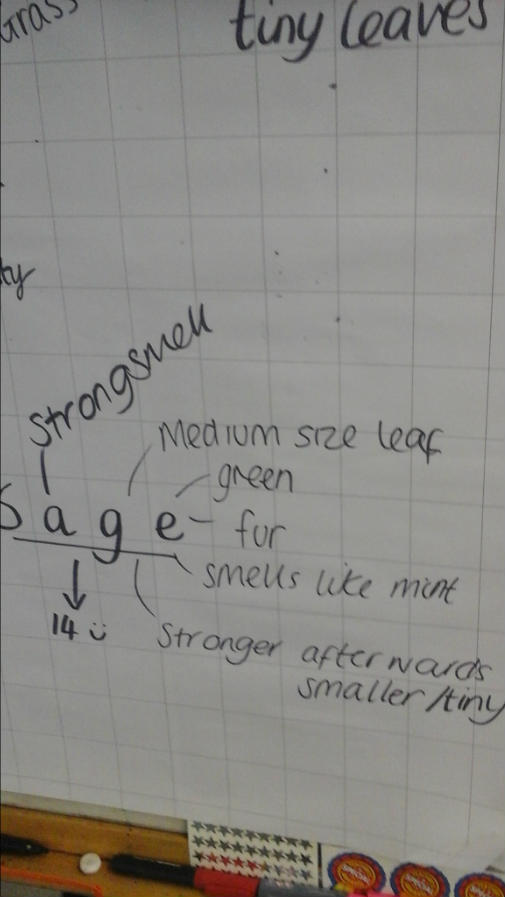 Grass
tiny leaves
ty
strongsmell
Medium size leaf
green
Sage - fur
smells like mint
14
Stronger afterwards
smaller/tiny